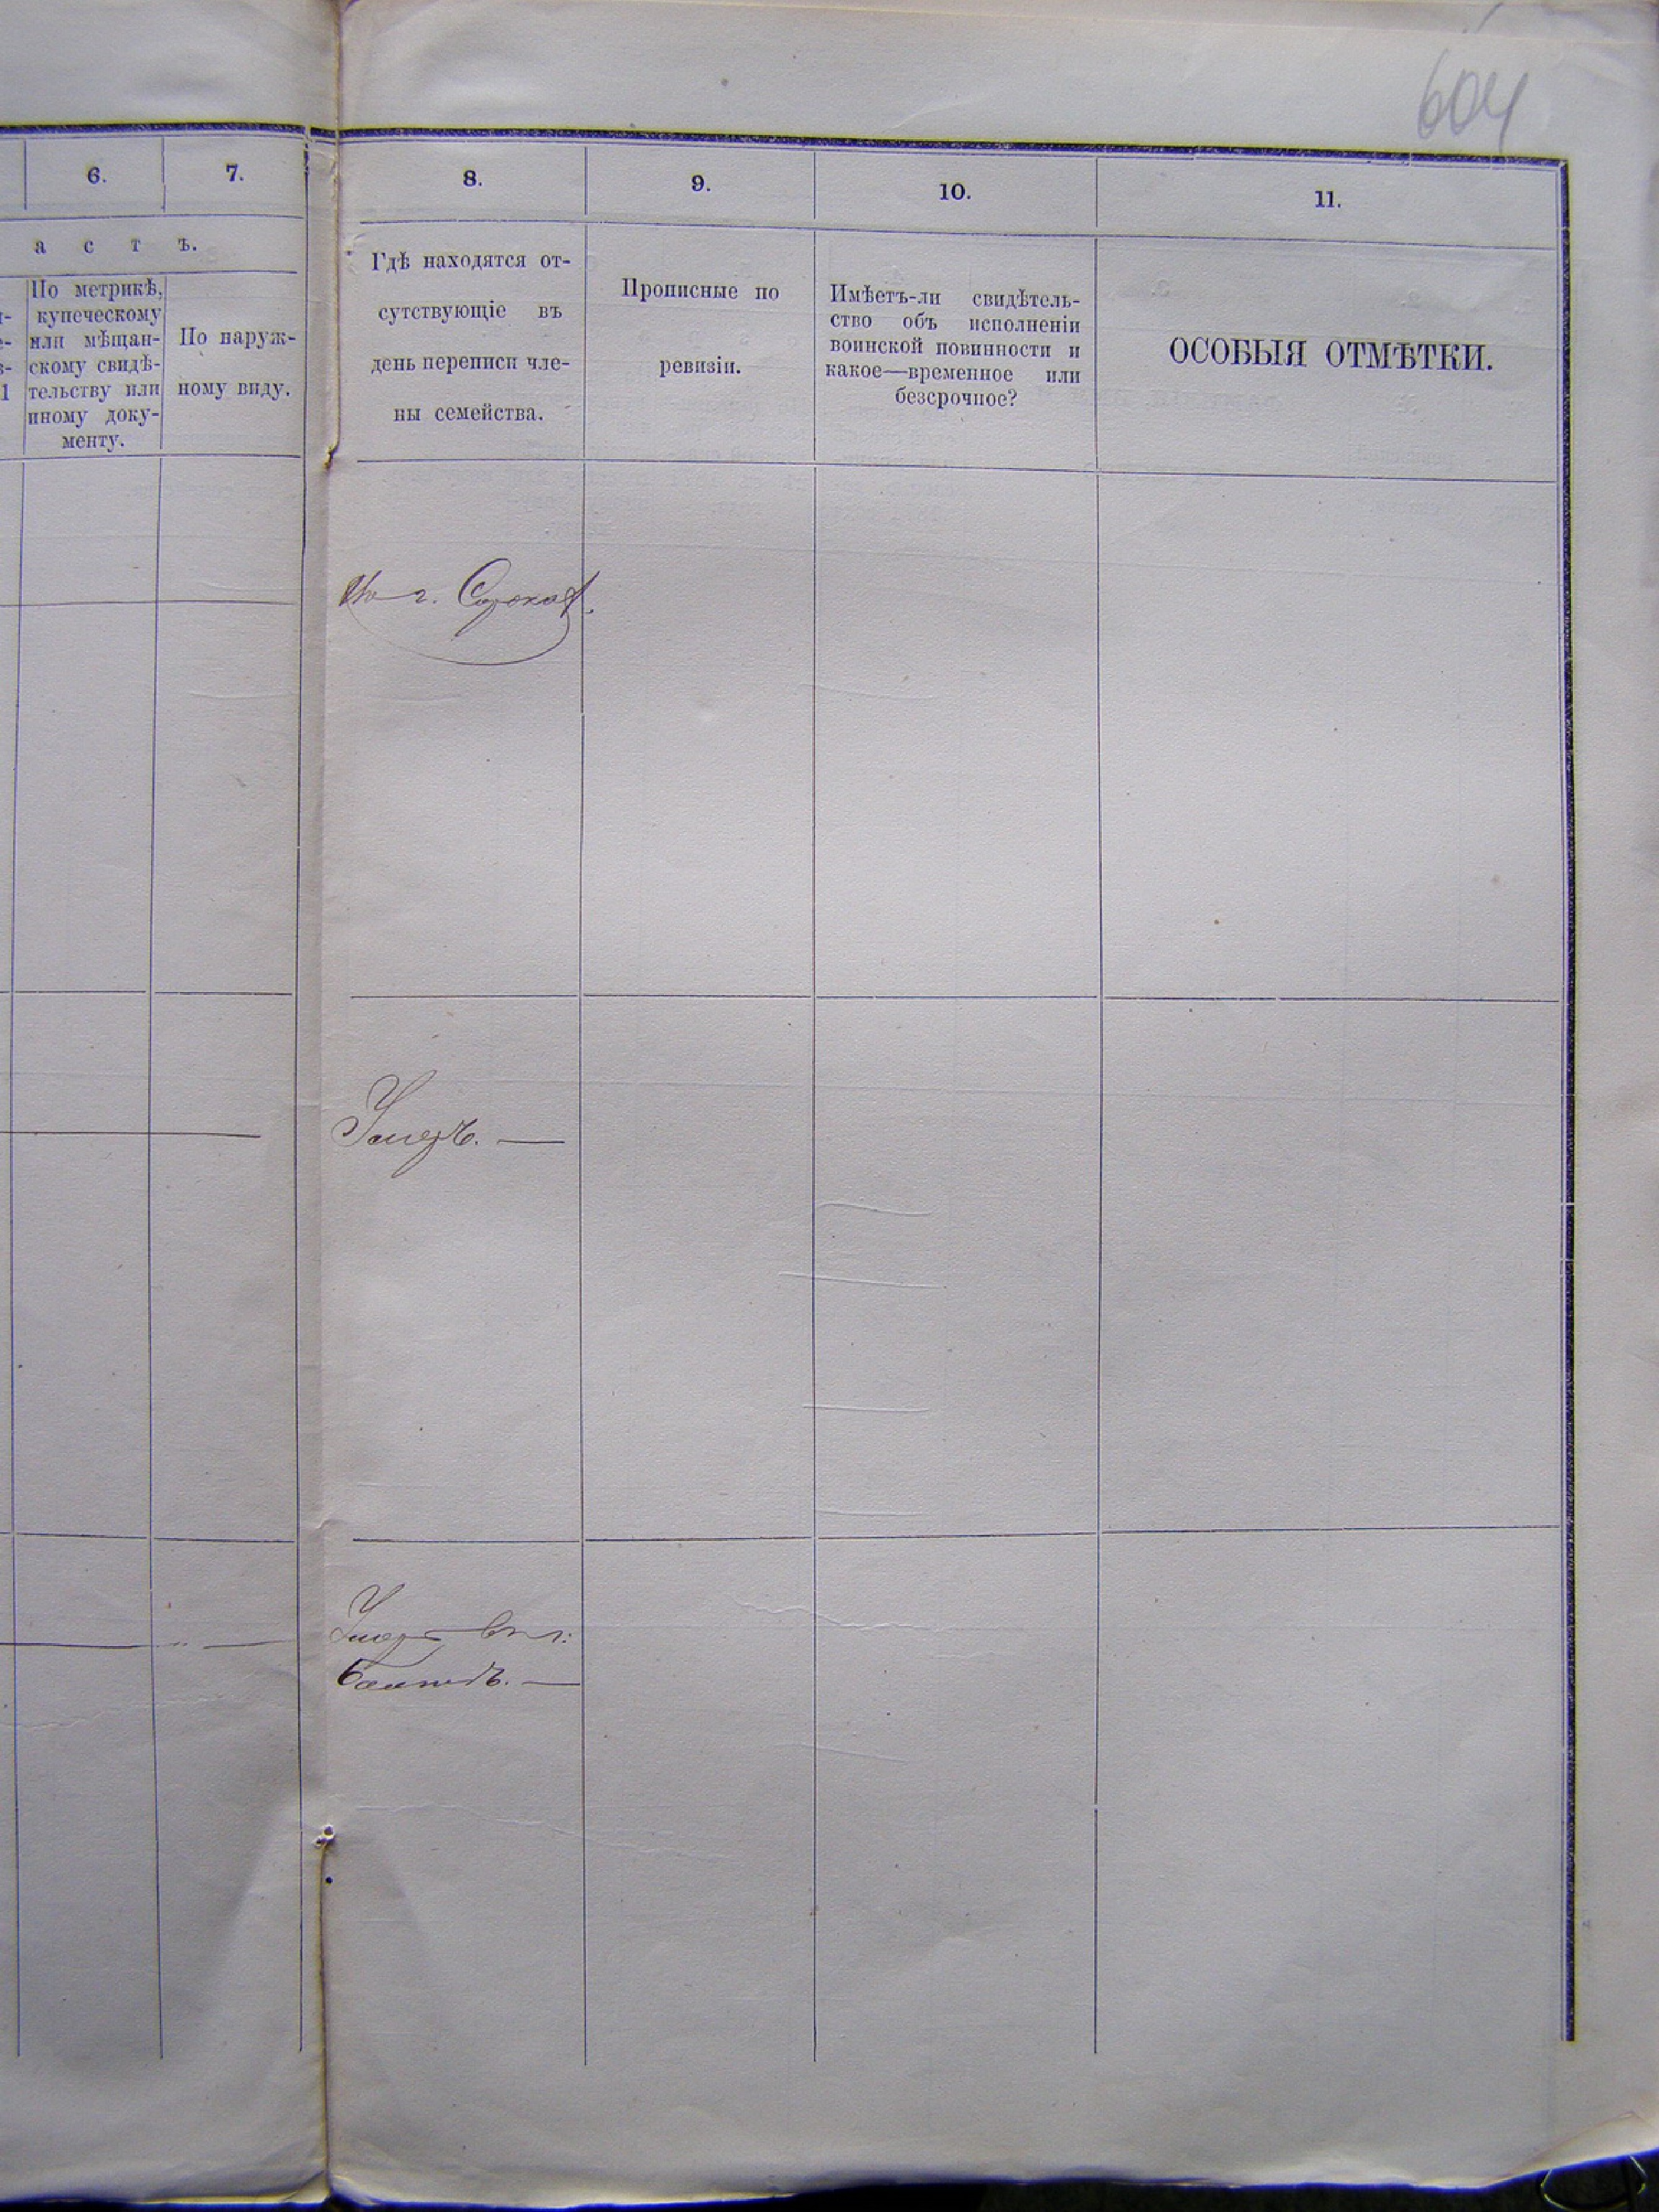 604
6.
7.
8.
9.
10.
11.
а с т ъ.
По метрикѣ,
купеческому
или мѣщан-
скому свидѣ-
тельству или
иному доку-
менту.
По наруж-
ному виду.
Гдѣ находятся от-
сутствующіе въ
день переписи чле-
ны семейства.
Прописные по
ревизіи.
Имѣетъ-ли свидѣтель-
ство объ исполненіи
воинской повинности и
какое—временное или
безсрочное?
ОСОБЫЯ ОТМѢТКИ.
г. Сороках.
Умеръ. —
Умеръ